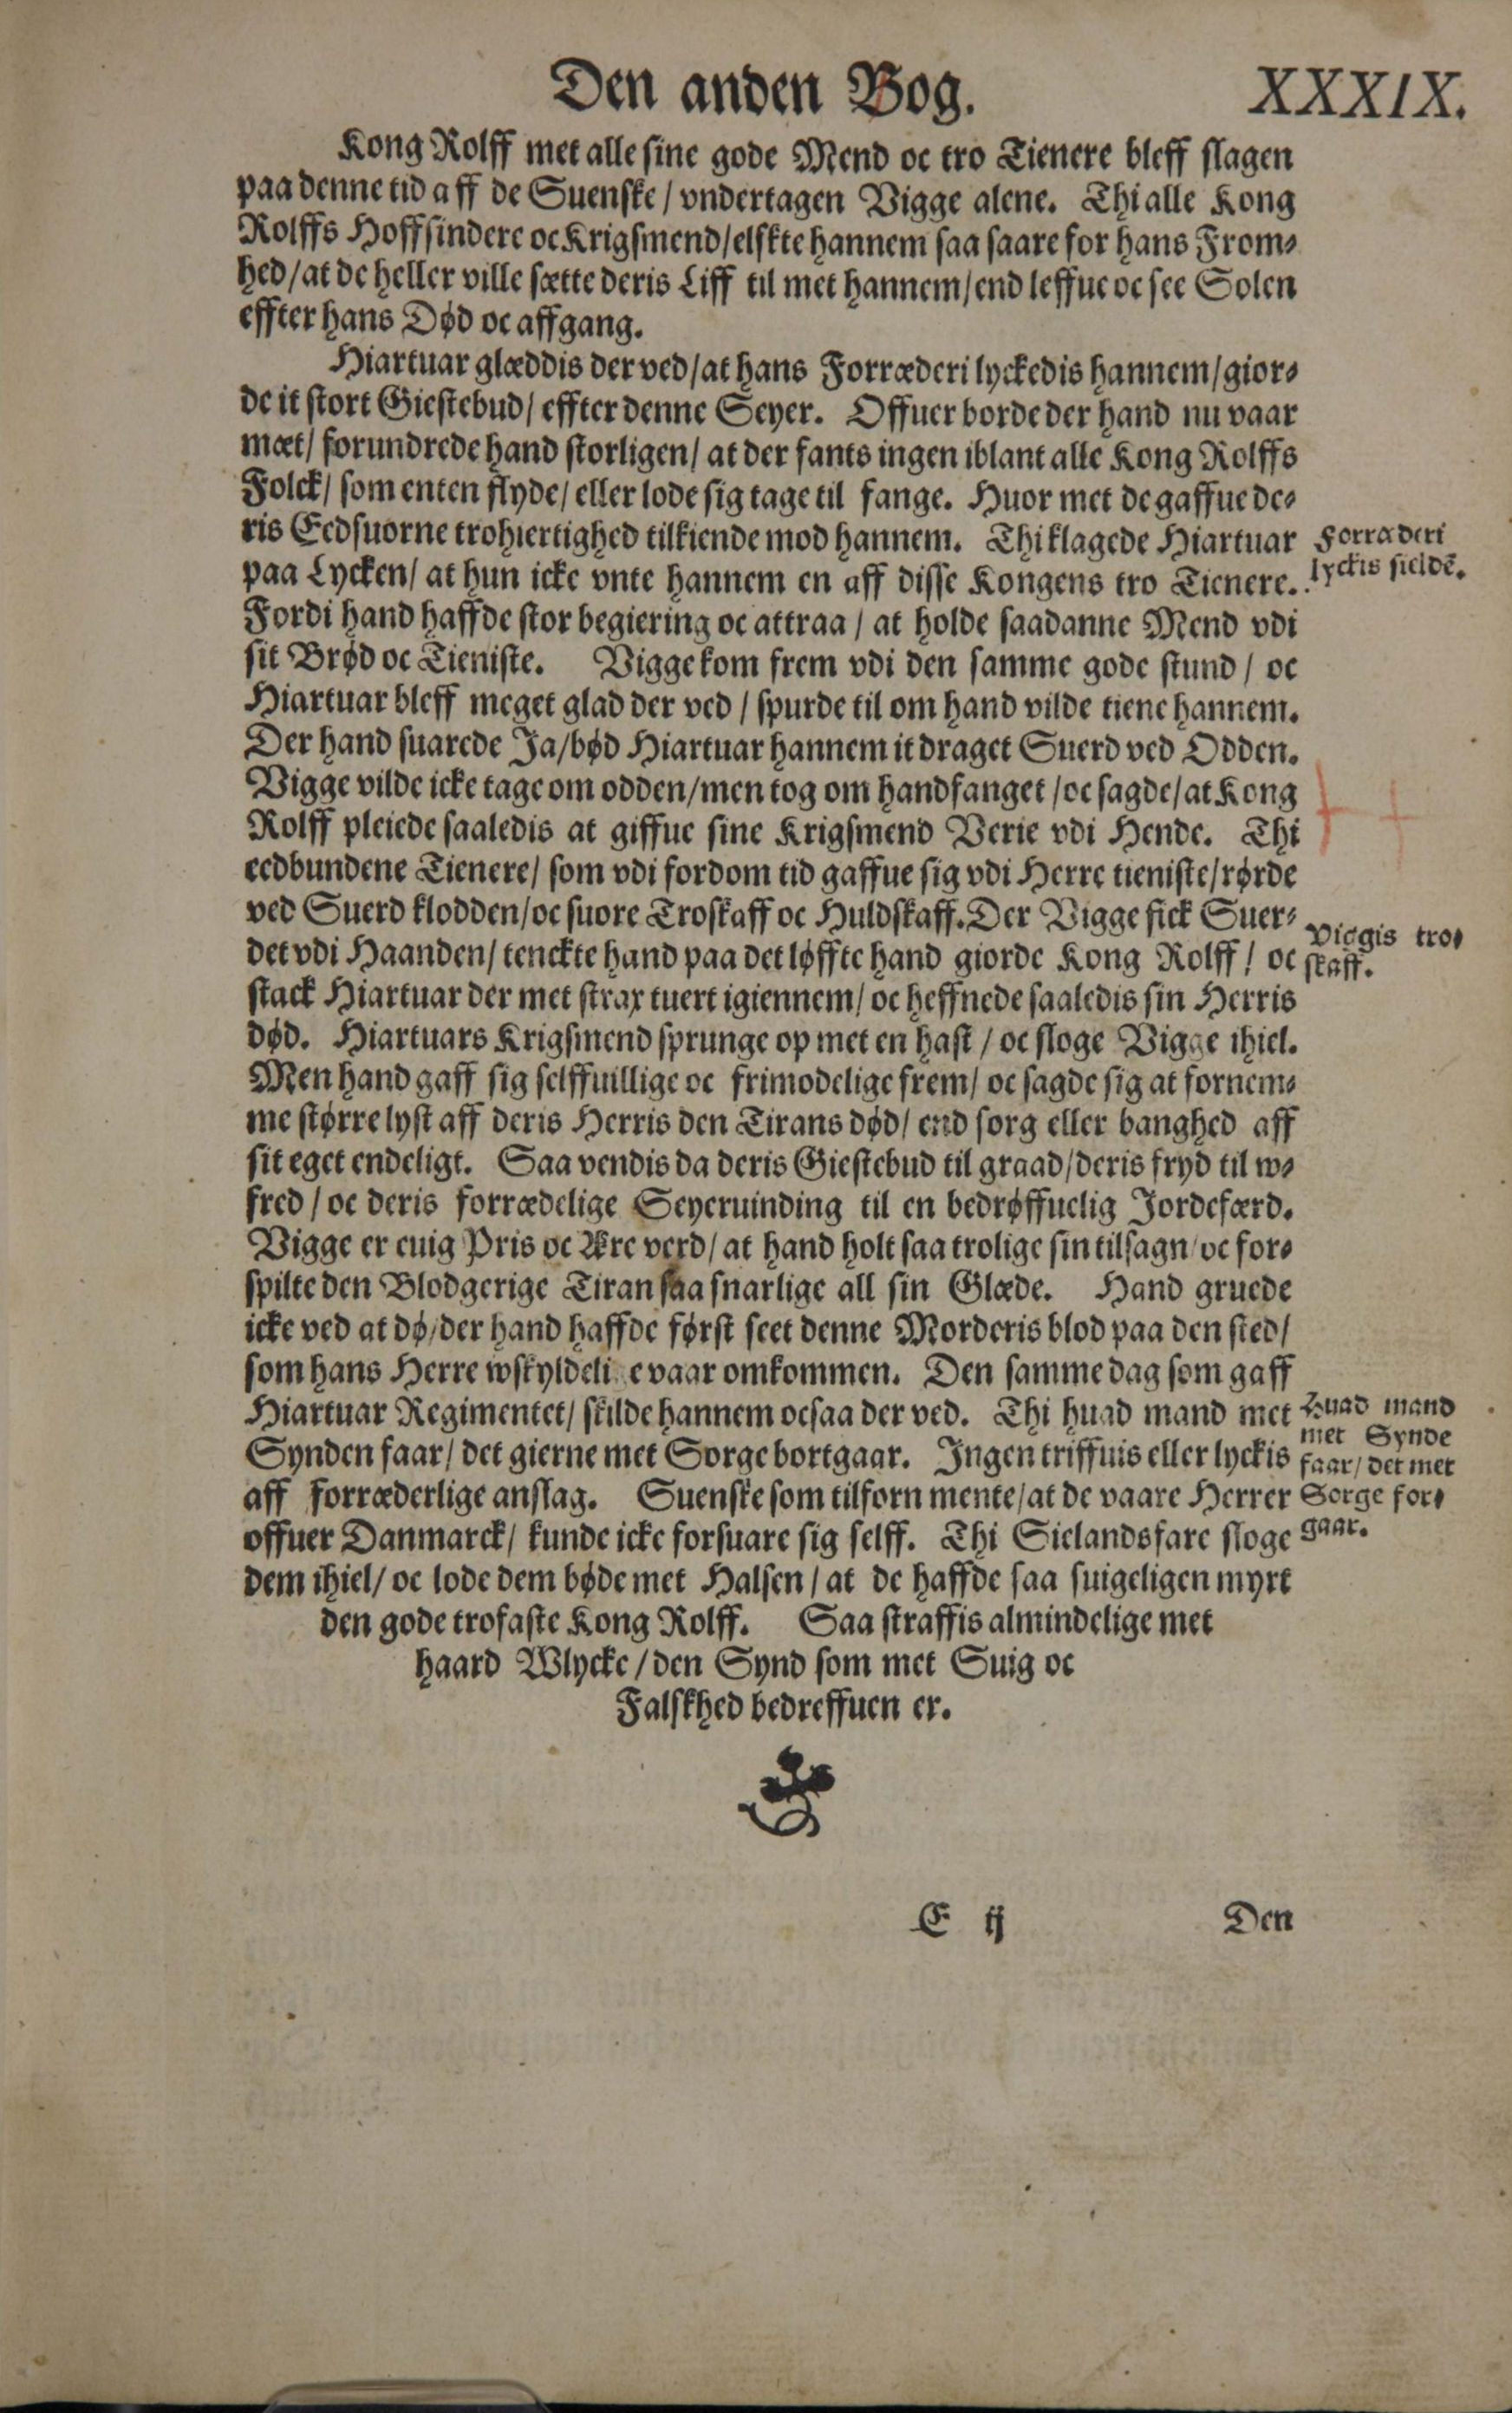 Den anden Bog. XXXIX.
Kong Rolff met alle sine gode Mend oc tro Tienere bleff slagen
paa denne tid aff de Suenske / vndertagen Vigge alene. Thi alle Kong
Rolffs Hoffsindere oc Krigsmend / elskte hannem saa saare for hans From⸗
hed / at de heller ville sætte deris Liff til met hannem / end leffue oc see Solen
effter hans Død oc affgang.
Hiartuar glæddis der ved / at hans Forræderi lyckedis hannem / gior⸗
de it stort Giestebud / effter denne Seyer. Offuer borde der hand nu vaar
mæt / forundrede hand storligen / at der fants ingen iblant alle Kong Rolffs
Folck / som enten flyde / eller lode sig tage til fange. Huor met de gaffue de⸗
ris Eedsuorne trohiertighed tilkiende mod hannem. Thi klagede Hiartuar
Forræderi
lyckis sieldē.
paa Lycken / at hun icke vnte hannem en aff disse Kongens tro Tienere.
Fordi hand haffde stor begiering oc attraa / at holde saadanne Mend vdi
sit Brød oc Tieniste. Vigge kom frem vdi den samme gode stund / oc
Hiartuar bleff meget glad der ved / spurde til om hand vilde tiene hannem.
Der hand suarede Ja / bød Hiartuar hannem it draget Suerd ved Odden.
Vigge vilde icke tage om odden / men tog om handfanget / oc sagde / at Kong
Rolff pleiede saaledis at giffue sine Krigsmend Verie vdi Hende. Thi
eedbundene Tienere / som vdi fordom tid gaffue sig vdi Herre tieniste / rørde
ved Suerd klodden / oc suore Troskaff oc Huldskaff. Der Vigge fick Suer⸗
Viggis tro⸗
skaff.
det vdi Haanden / tenckte hand paa det løffte hand giorde Kong Rolff / oc
stack Hiartuar der met strax tuert igiennem / oc heffnede saaledis sin Herris
død. Hiartuars Krigsmend sprunge op met en hast / oc sloge Vigge ihiel.
Men hand gaff sig selffuillige oc frimodelige frem / oc sagde sig at fornem⸗
me større lyst aff deris Herris den Tirans død / end sorg eller banghed aff
sit eget endeligt. Saa vendis da deris Giestebud til graad / deris fryd til w⸗
fred / oc deris forrædelige Seyeruinding til en bedrøffuelig Jordefærd.
Vigge er euig Pris oc Ære verd / at hand holt saa trolige sin tilsagn / oc for⸗
spilte den Blodgerige Tiran saa snarlige all sin Glæde. Hand gruede
icke ved at dø / der hand haffde først seet denne Morderis blod paa den sted /
som hans Herre wskyldelige vaar omkommen. Den samme dag som gaff
Hiartuar Regimentet / skilde hannem ocsaa der ved. Thi huad mand met
Huad mand
met Synde
faar / det met
Sorge for⸗
gaar.
Synden faar / det gierne met Sorge bortgaar. Ingen triffuis eller lyckis
aff forræderlige anslag. Suenske som tilforn mente / at de vaare Herrer
offuer Danmarck / kunde icke forsuare sig selff. Thi Sielandsfare sloge
dem ihiel / oc lode dem bøde met Halsen / at de haffde saa suigeligen myrt
den gode trofaste Kong Rolff. Saa straffis almindelige met
haard Wlycke / den Synd som met Suig oc
Falskhed bedreffuen er.
E ij Den